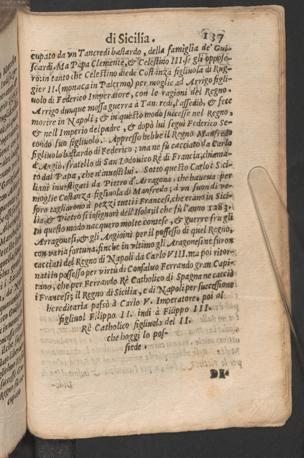 di Sicilia. 137
cupato da un Tancredi bastardo, della famiglia de' Gui-
scardi. Ma Papa Clemente, & Celestino III. se gli oppose-
ro: in tanto che Celestino diede Costanza figliuola di Rug-
gier II. (monaca in Palermo) per moglie ad Arrigo figli-
uolo di Federico Imperatore, con le ragioni del Regno.
Arrigo dunque mossa guerra à Tancredi, l'assediò, & fece
morire in Napoli; & in questo modo successe nel Regno,
& nell' Imperio del padre, & dopò lui seguì Federico Se-
condo suo figliuolo. Appresso hebbe il Regno Manfredo
figliuolo bastardo di Federico; ma ne fù cacciato da Carlo
d'Angiò, fratello di San Lodovico Rè di Francia, chiama-
to dal Papa, che n'investì lui. Sotto questo Carlo i Sici-
liani instigati da Pietro d'Aragona, che haveva per
moglie Costanza figliuola di Manfredo; à un suon di ve-
spro tagliarono à pezzi tutti i Francesi, che erano in Sici-
lia, & Pietro s'insignorì dell'Isola; il che fù l'anno 1283.
In questo modo nacquero molte contese, & guerre fra gli
Arragonesi, & gli Angioini per il possesso di quel Regno,
con varia fortuna, finche in ultimo gli Aragonesi ne furon
cacciati del Regno di Napoli da Carlo VIII. ma poi ritor-
nati in possesso per virtù di Consalvo Ferrando gran Capi-
tano, che per Ferrando Rè Catholico di Spagna ne cacciò
i Francesi; il Regno di Sicilia, e di Napoli per successione
hereditaria passò à Carlo V. Imperatore, poi al
figliuol Filippo II. indi à Filippo III.
Rè Catholico figliuolo del II.
che hoggi lo pos-
siede.
DE-